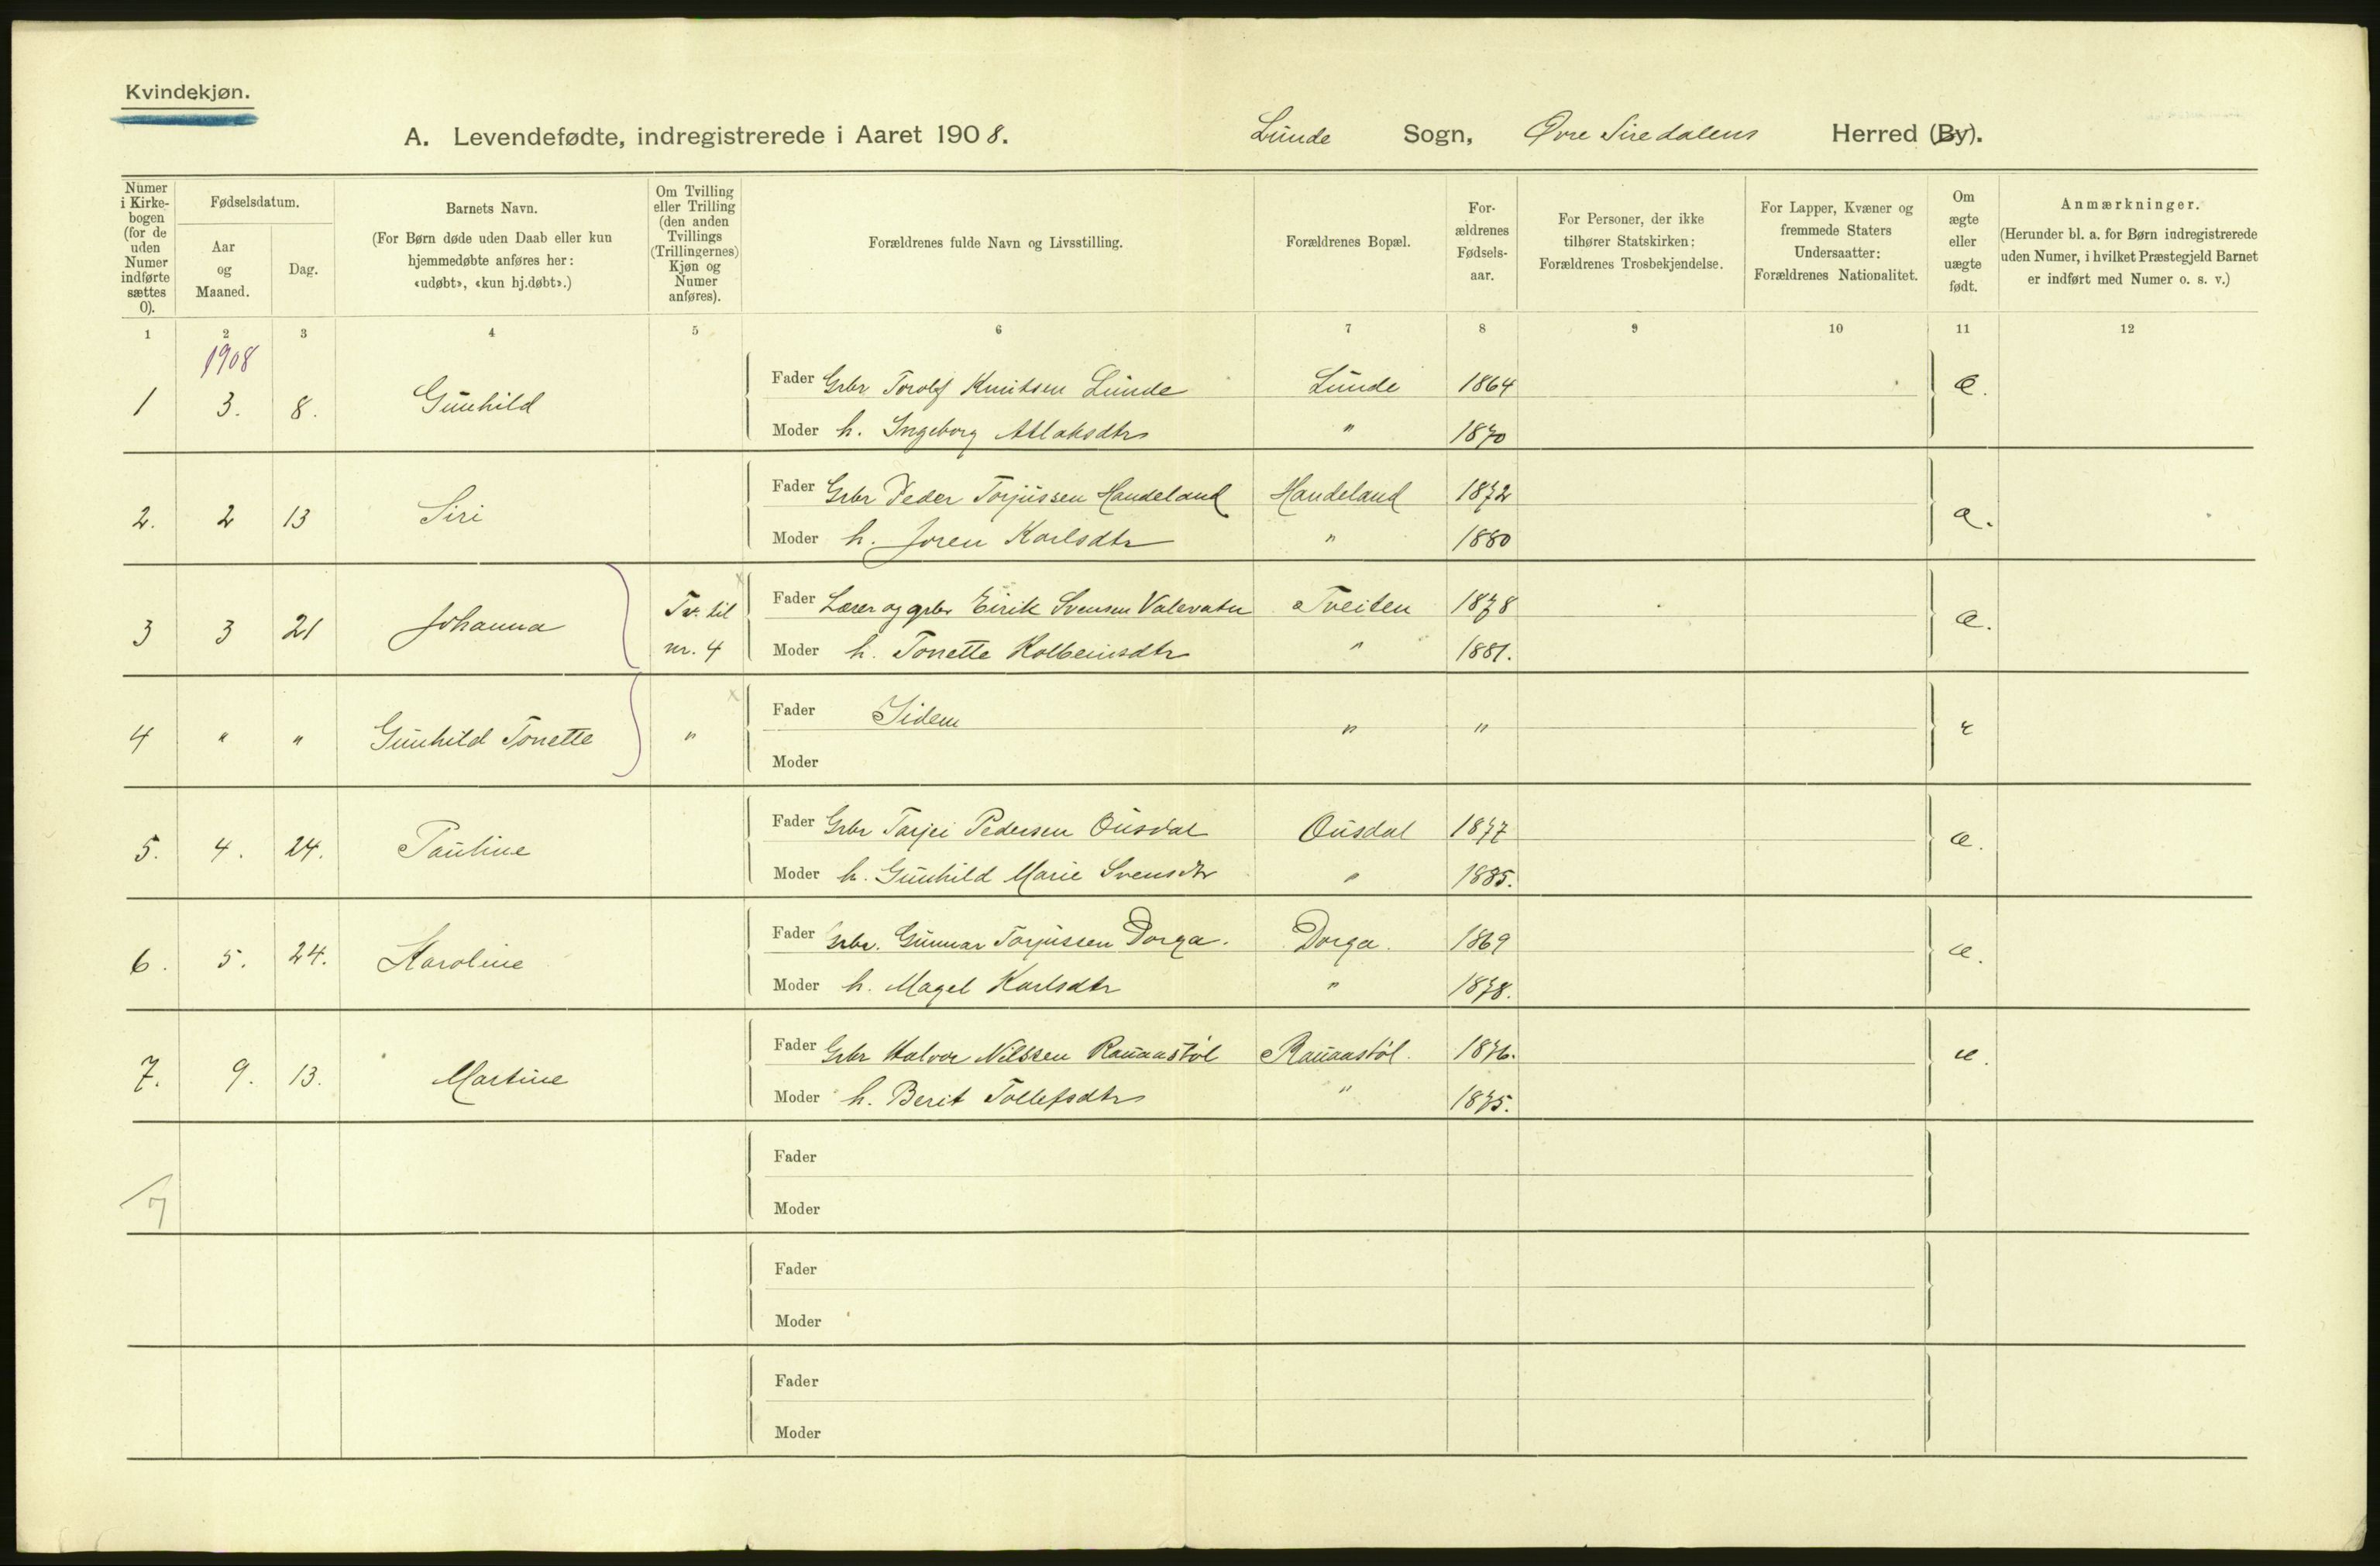 Kvindekjøn.
A. Levendefødte, indregistrerede i Aaret 1908. Lunde Sogn, Øvre Siredalens Herred (By).
Numer i Kirkebogen (for de uden Numer indførte sættes 0).
Fødselsdatum.
Aar og Maaned.
Dag.
Barnets Navn.
(For Børn døde uden Daab eller kun hjemmedøbte anføres her: «udøbt», «kun hj.døbt».)
Om Tvilling eller Trilling (den anden Tvillings (Trillingernes) Kjøn og Numer anføres).
Forældrenes fulde Navn og Livsstilling.
Forældrenes Bopæl.
Forældrenes Fødselsaar.
For Personer, der ikke tilhører Statskirken: Forældrenes Trosbekjendelse.
For Lapper, Kvæner og fremmede Staters Undersaatter: Forældrenes Nationalitet.
Om ægte eller uægte født.
Anmærkninger.
(Herunder bl. a. for Børn indregistrerede uden Numer, i hvilket Præstegjeld Barnet er indført med Numer o. s. v.)
1 2 3 4 5 6 7 8 9 10 11 12
1908
1 3. 8. Gunhild Fader Grbr Torolf Knutsen Lunde Lunde 1864 æ.
Moder h. Ingeborg Atlaksdtr " 1870
2. 2 13 Siri Fader Grbr Peder Torjussen Handeland Handeland 1872 æ.
Moder h. Joren Karlsdtr " 1880
3 3 21 Johanna Tv. til nr. 4 Fader Lærer og grbr Eirik Svensen Valevatn Tveiten 1878 æ.
Moder h. Tonette Kolbeinsdtr " 1881.
4 " " Gunhild Tonette " Fader Idem " " "
Moder
5. 4. 24. Pauline Fader Grbr Tarjei Pedersen Ousdal Ousdal 1877 æ.
Moder h. Gunhild Marie Svensdtr " 1885.
6. 5. 24. Karoline Fader Grbr. Gunnar Torjussen Dorga. Dorga. 1869 æ.
Moder h. Magel Karlsdtr " 1878.
7. 9. 13. Martine Fader Grbr Halvor Nilssen Rauaastøl Rauaastøl. 1876. æ.
Moder h. Berit Tollefsdtr " 1875.
Fader
7
Moder
Fader
Moder
Fader
Moder